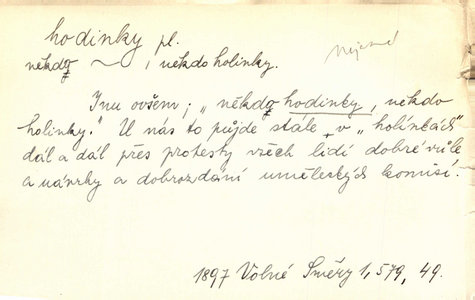 hodinky pl.
někdo ~, někdo holinky.
Inu ovšem; „někdo hodinky, někdo
holinky." U nás to půjde stále „v „holínkách"
dál a dál přes protesty všech lidí dobré vůle
a návrhy a dobrozdání uměleckých komisí.
1897 Volné Směry 1, 579, 49.